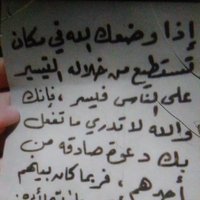 إذا وضعك الله في مكان
تستطيع من خلاله التيسير
على الناس فيسر ، فإنك
والله لا تدري ما تفعل
بك دعوة صادقة من
أحدهم ، فربما كان بينهم